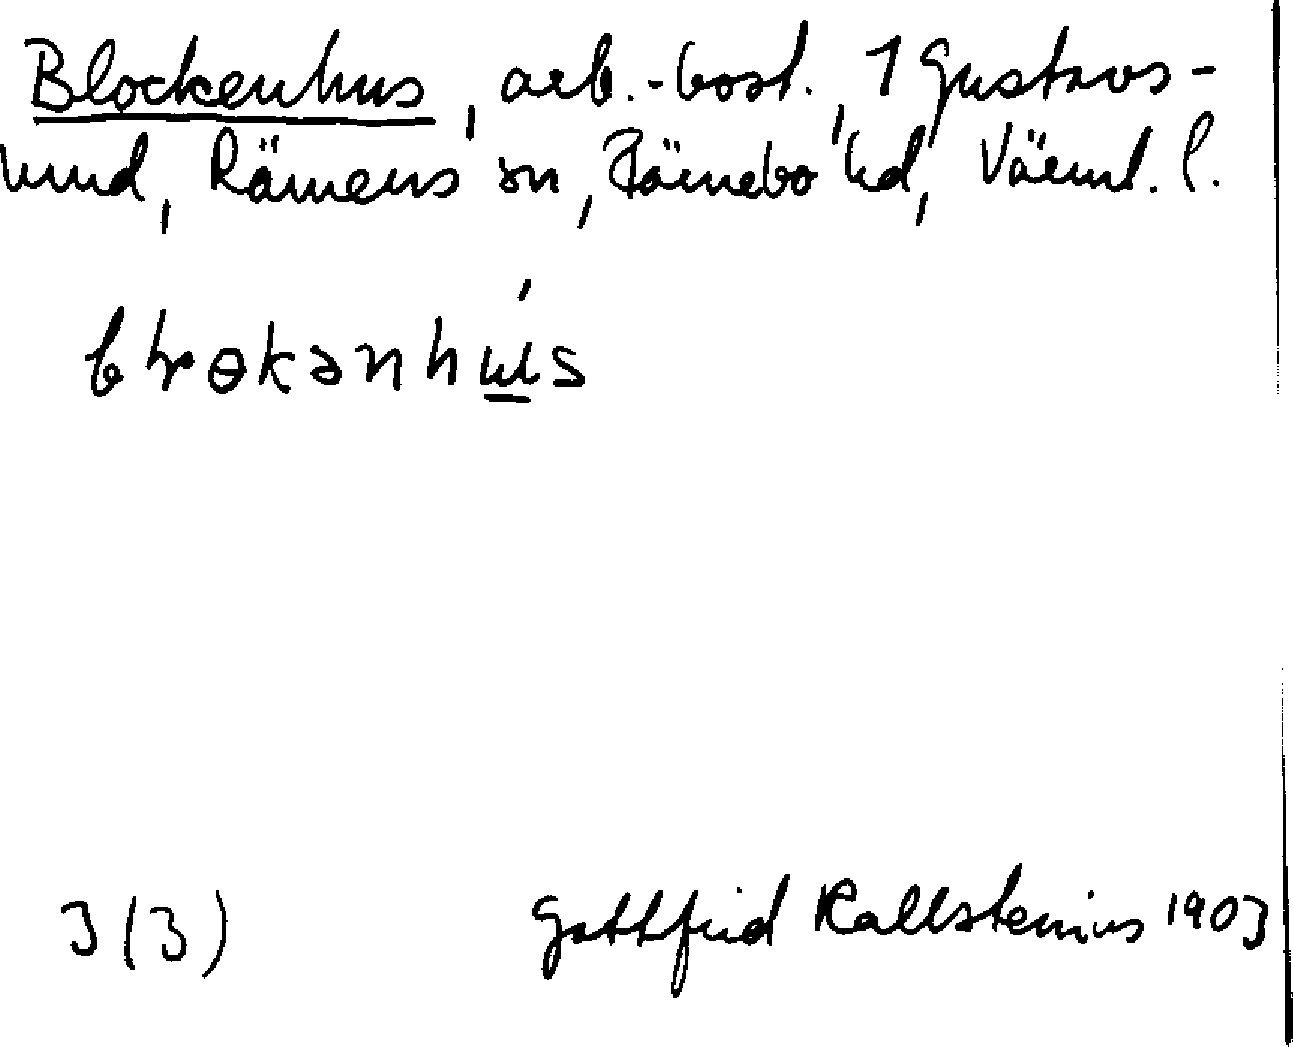 Blockenhus, arb.-bost., 1 Gustavs-
lund, Rämens sn, Färnebo hd, Värml. l.
bɫɵkənhu̲s
3(3) Gottfrid Kallstenius 1903